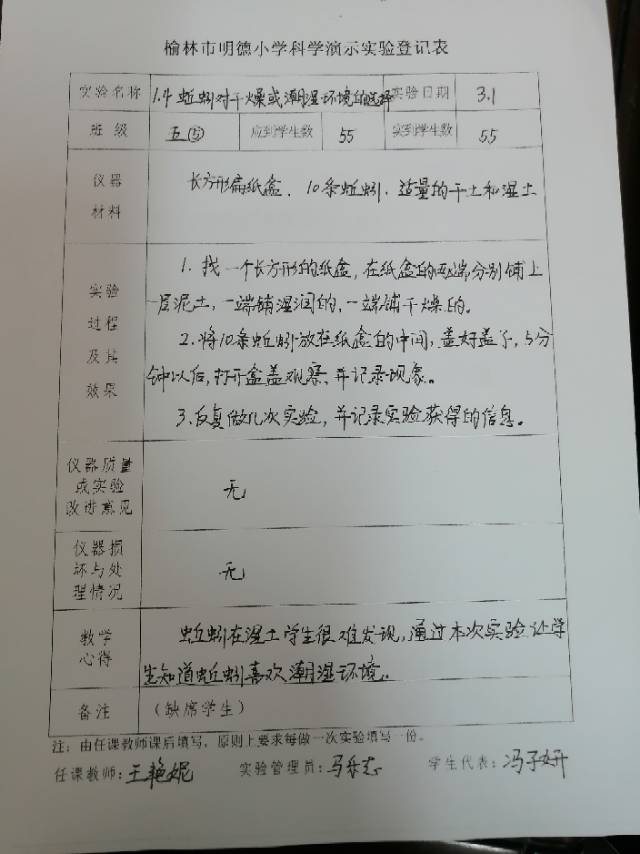 榆林市明德小学科学演示实验登记表
实验名称 1.4 蚯蚓对干燥或潮湿环境的选择 实验日期 3.1
班 级 五⑤ 应到学生数 55 实到学生数 55
仪器 材料 长方形扁纸盒、10条蚯蚓、适量的干土和湿土
实验 过程 及其 效果
1. 找一个长方形的纸盒,在纸盒的两端分别铺上
一层泥土,一端铺湿润的,一端铺干燥的。
2.将10条蚯蚓放在纸盒的中间,盖好盖子,5分
钟以后,打开盒盖观察、并记录现象。
3.反复做几次实验,并记录实验获得的信息。
仪器质量
或实验
改进意见
无
仪器损
坏与处
理情况
无
教学
心得
蚯蚓在湿土学生很难发现,通过本次实验让学
生知道蚯蚓喜欢潮湿环境。
备注 (缺席学生)
注:由任课教师课后填写,原则上要求每做一次实验填写一份。
任课教师:王艳妮 实验管理员:马 志 学生代表:冯子妍